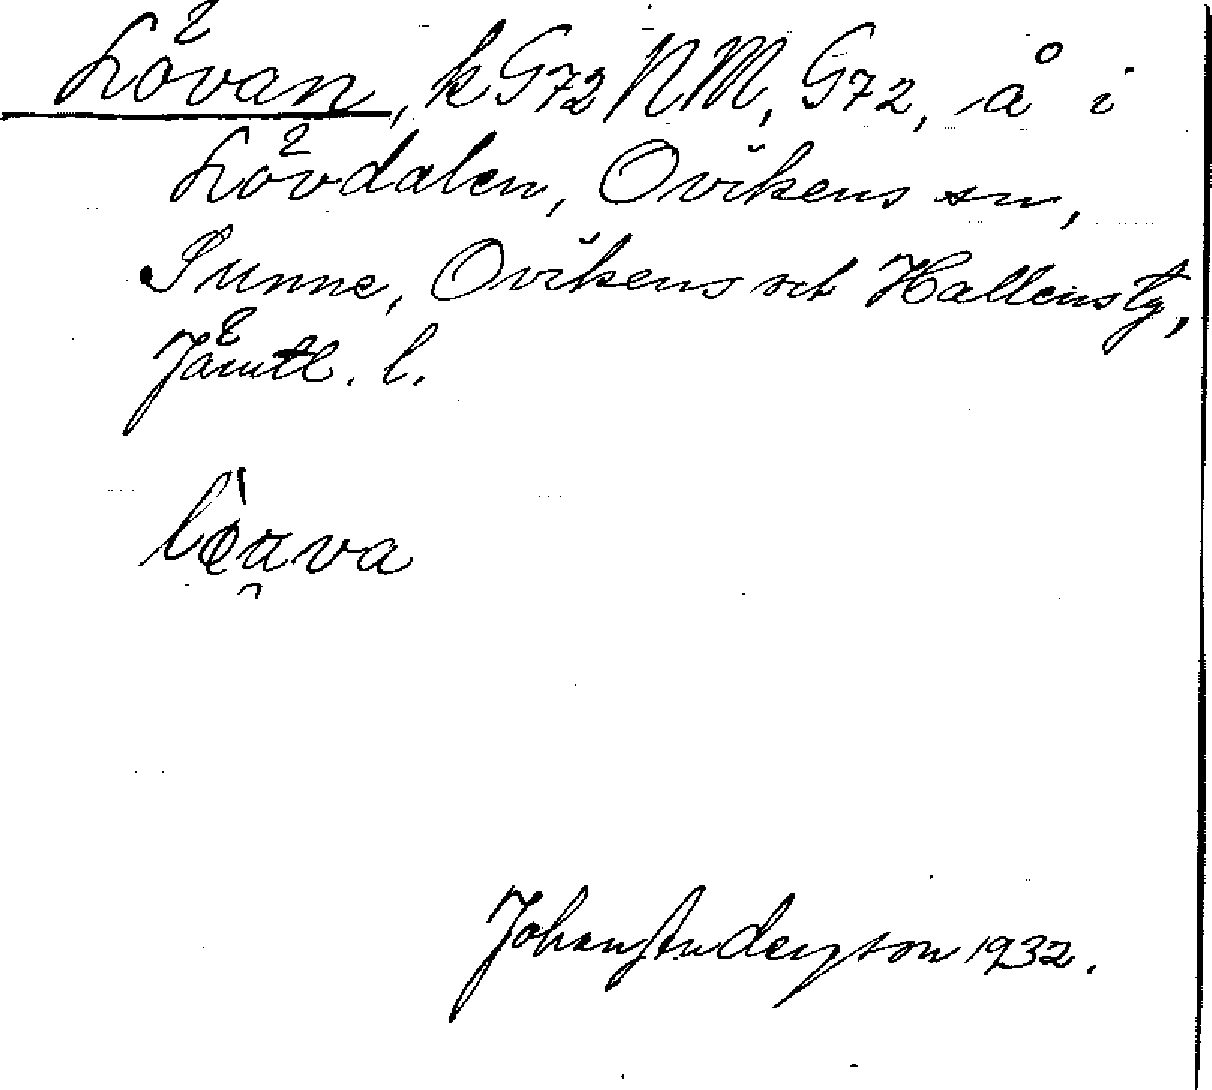 Lövan, k G72 NM, G72, å i
Lövdalen, Ovikens sn,
Sunne, Ovikens och Hallens tg,
Jämtl. l.
Johan Anderson 1932.